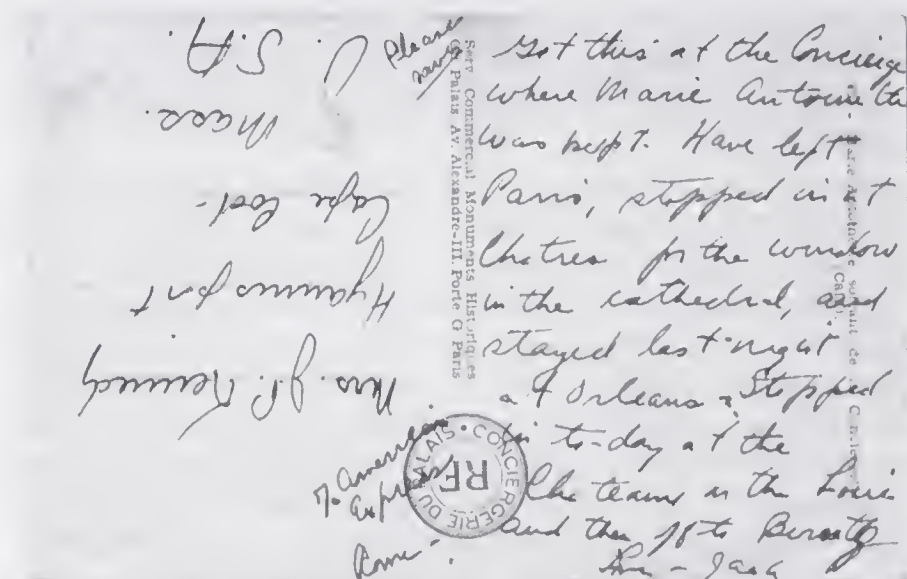 Got this at the Concierge
where Marie Antoinette
was kept. Have left
Paris, stopped in at
Chatres for the window
in the cathedral, and
stayed last night
at Orleans & Stopped
in to-day at the
Chateaus in the Loire
and then off to
Love - Jack
Please
save
Serv Commercial Monuments Historiques
Gd Palais Av. Alexandre-III. Porte G Paris
Mrs. J. P. Kennedy
Hyannisport
Cape Cod -
Mass.
U. S. A.
c/o American
Express
Rome -
CONCIERGERIE DU PALAIS
RF